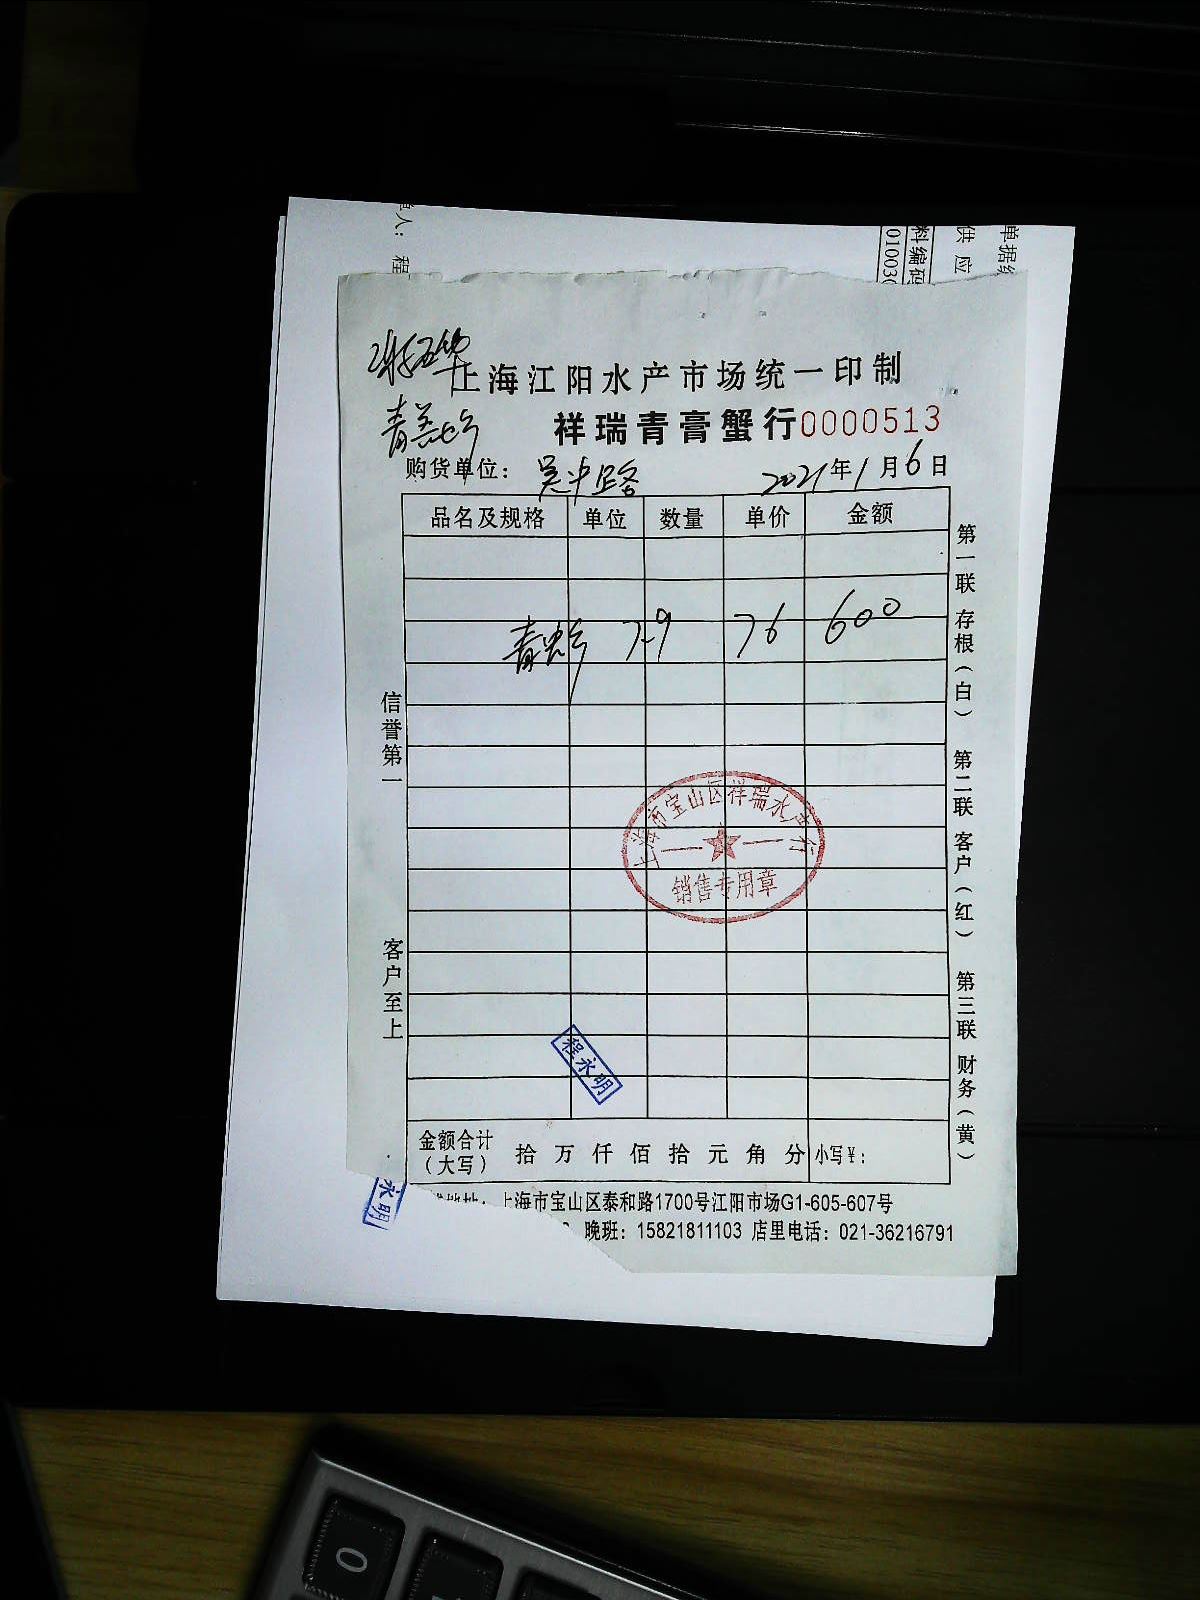 单据编
供应
料编码
01003
单人：程
上海江阳水产市场统一印制
祥瑞青膏蟹行0000513
购货单位：吴中路 2021年1月6日
品名及规格 单位 数量 单价 金额
7.9 76 600
信誉第一
客户至上
第一联 存根（白） 第二联 客户（红） 第三联 财务（黄）
上海市宝山区祥瑞水产行
销售专用章
程永明
金额合计（大写） 拾 万 仟 佰 拾 元 角 分 小写¥：
永明
上海市宝山区泰和路1700号江阳市场G1-605-607号
晚班：15821811103 店里电话：021-36216791
0